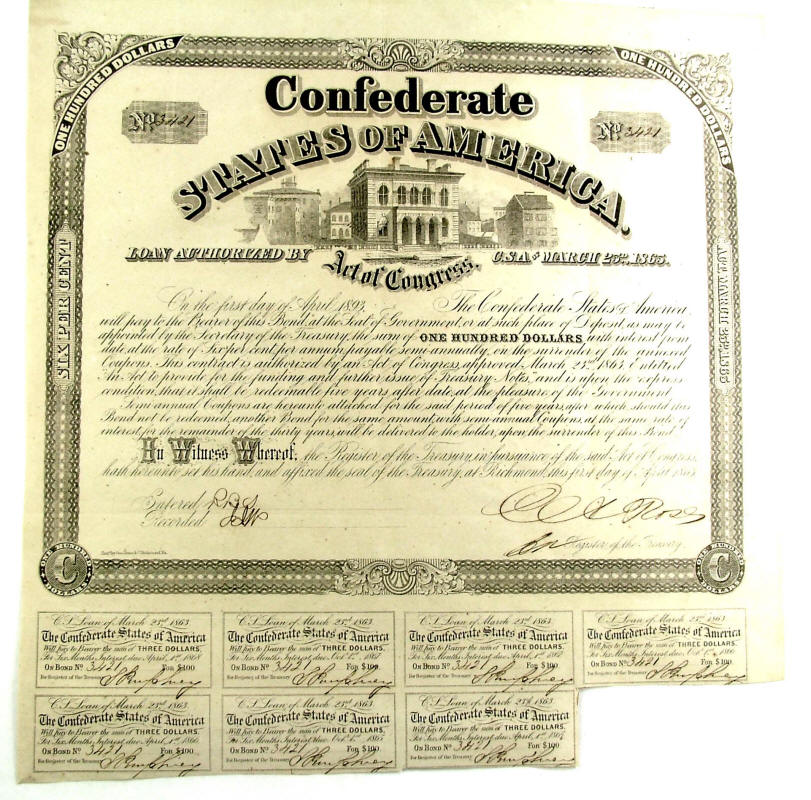 ONE HUNDRED DOLLARS
ONE HUNDRED DOLLARS
Confederate
No 3421
No 3421
STATES OF AMERICA.
LOAN AUTHORIZED BY
C.S.A. OF MARCH 23RD. 1863.
Act of Congress,
SIX PER CENT
ACT MARCH 23RD 1863
On the first day of April 1893, The Confederate States of America,
will pay to the Bearer of this Bond, at the Seat of Government, or at such place of Deposit, as may be
appointed by the Secretary of the Treasury, the sum of ONE HUNDRED DOLLARS, with interest from
date, at the rate of Six per cent, per annum, payable semi-annually, on the surrender of the annexed
Coupons. This contract is authorized by an Act of Congress, approved March 23rd 1863, Entitled
An Act to provide for the funding and further issue of Treasury Notes, and is upon the express
condition, that it shall be redeemable five years after date, at the pleasure of the Government
Semi annual Coupons are hereunto attached for the said period of five years, after which should this
Bond not be redeemed, another Bond for the same amount, with semi-annual Coupons, at the same rate of
interest, for the remainder of the thirty years, will be delivered to the holder, upon the surrender of this Bond
In Witness Whereof, the Register of the Treasury, in pursuance of the said Act of Congress,
hath hereunto set his hand, and affixed the seal of the Treasury, at Richmond, this first day of April 1863
Entered
Recorded
Rose
Register of the Treasury
ONE HUNDRED
C
DOLLARS
ONE HUNDRED
C
DOLLARS
C.S. Loan of March 23rd 1863
The Confederate States of America
Will pay to Bearer the sum of THREE DOLLARS.
For Six Months Interest due April, 1st 1868
ON BOND No 3421 FOR $100.
for Register of the Treasury
C.S. Loan of March 23rd 1863
The Confederate States of America
Will pay to Bearer the sum of THREE DOLLARS.
For Six Months Interest due Oct. 1st 1867
ON BOND No 3421 FOR $100.
for Register of the Treasury
C.S. Loan of March 23rd 1863
The Confederate States of America
Will pay to Bearer the sum of THREE DOLLARS.
For Six Months Interest due April, 1st 1867
ON BOND No 3421 FOR $100.
for Register of the Treasury
C.S. Loan of March 23rd 1863
The Confederate States of America
Will pay to Bearer the sum of THREE DOLLARS.
For Six Months Interest due Oct. 1st 1866
ON BOND No 3421 FOR $100.
for Register of the Treasury
C.S. Loan of March 23rd 1863
The Confederate States of America
Will pay to Bearer the sum of THREE DOLLARS.
For Six Months Interest due April, 1st 1866
ON BOND No 3421 FOR $100.
for Register of the Treasury
C.S. Loan of March 23rd 1863
The Confederate States of America
Will pay to Bearer the sum of THREE DOLLARS.
For Six Months Interest due Oct. 1st 1865
ON BOND No 3421 FOR $100.
for Register of the Treasury
C.S. Loan of March 23rd 1863
The Confederate States of America
Will pay to Bearer the sum of THREE DOLLARS.
For Six Months Interest due April, 1st 1865
ON BOND No 3421 FOR $100.
for Register of the Treasury